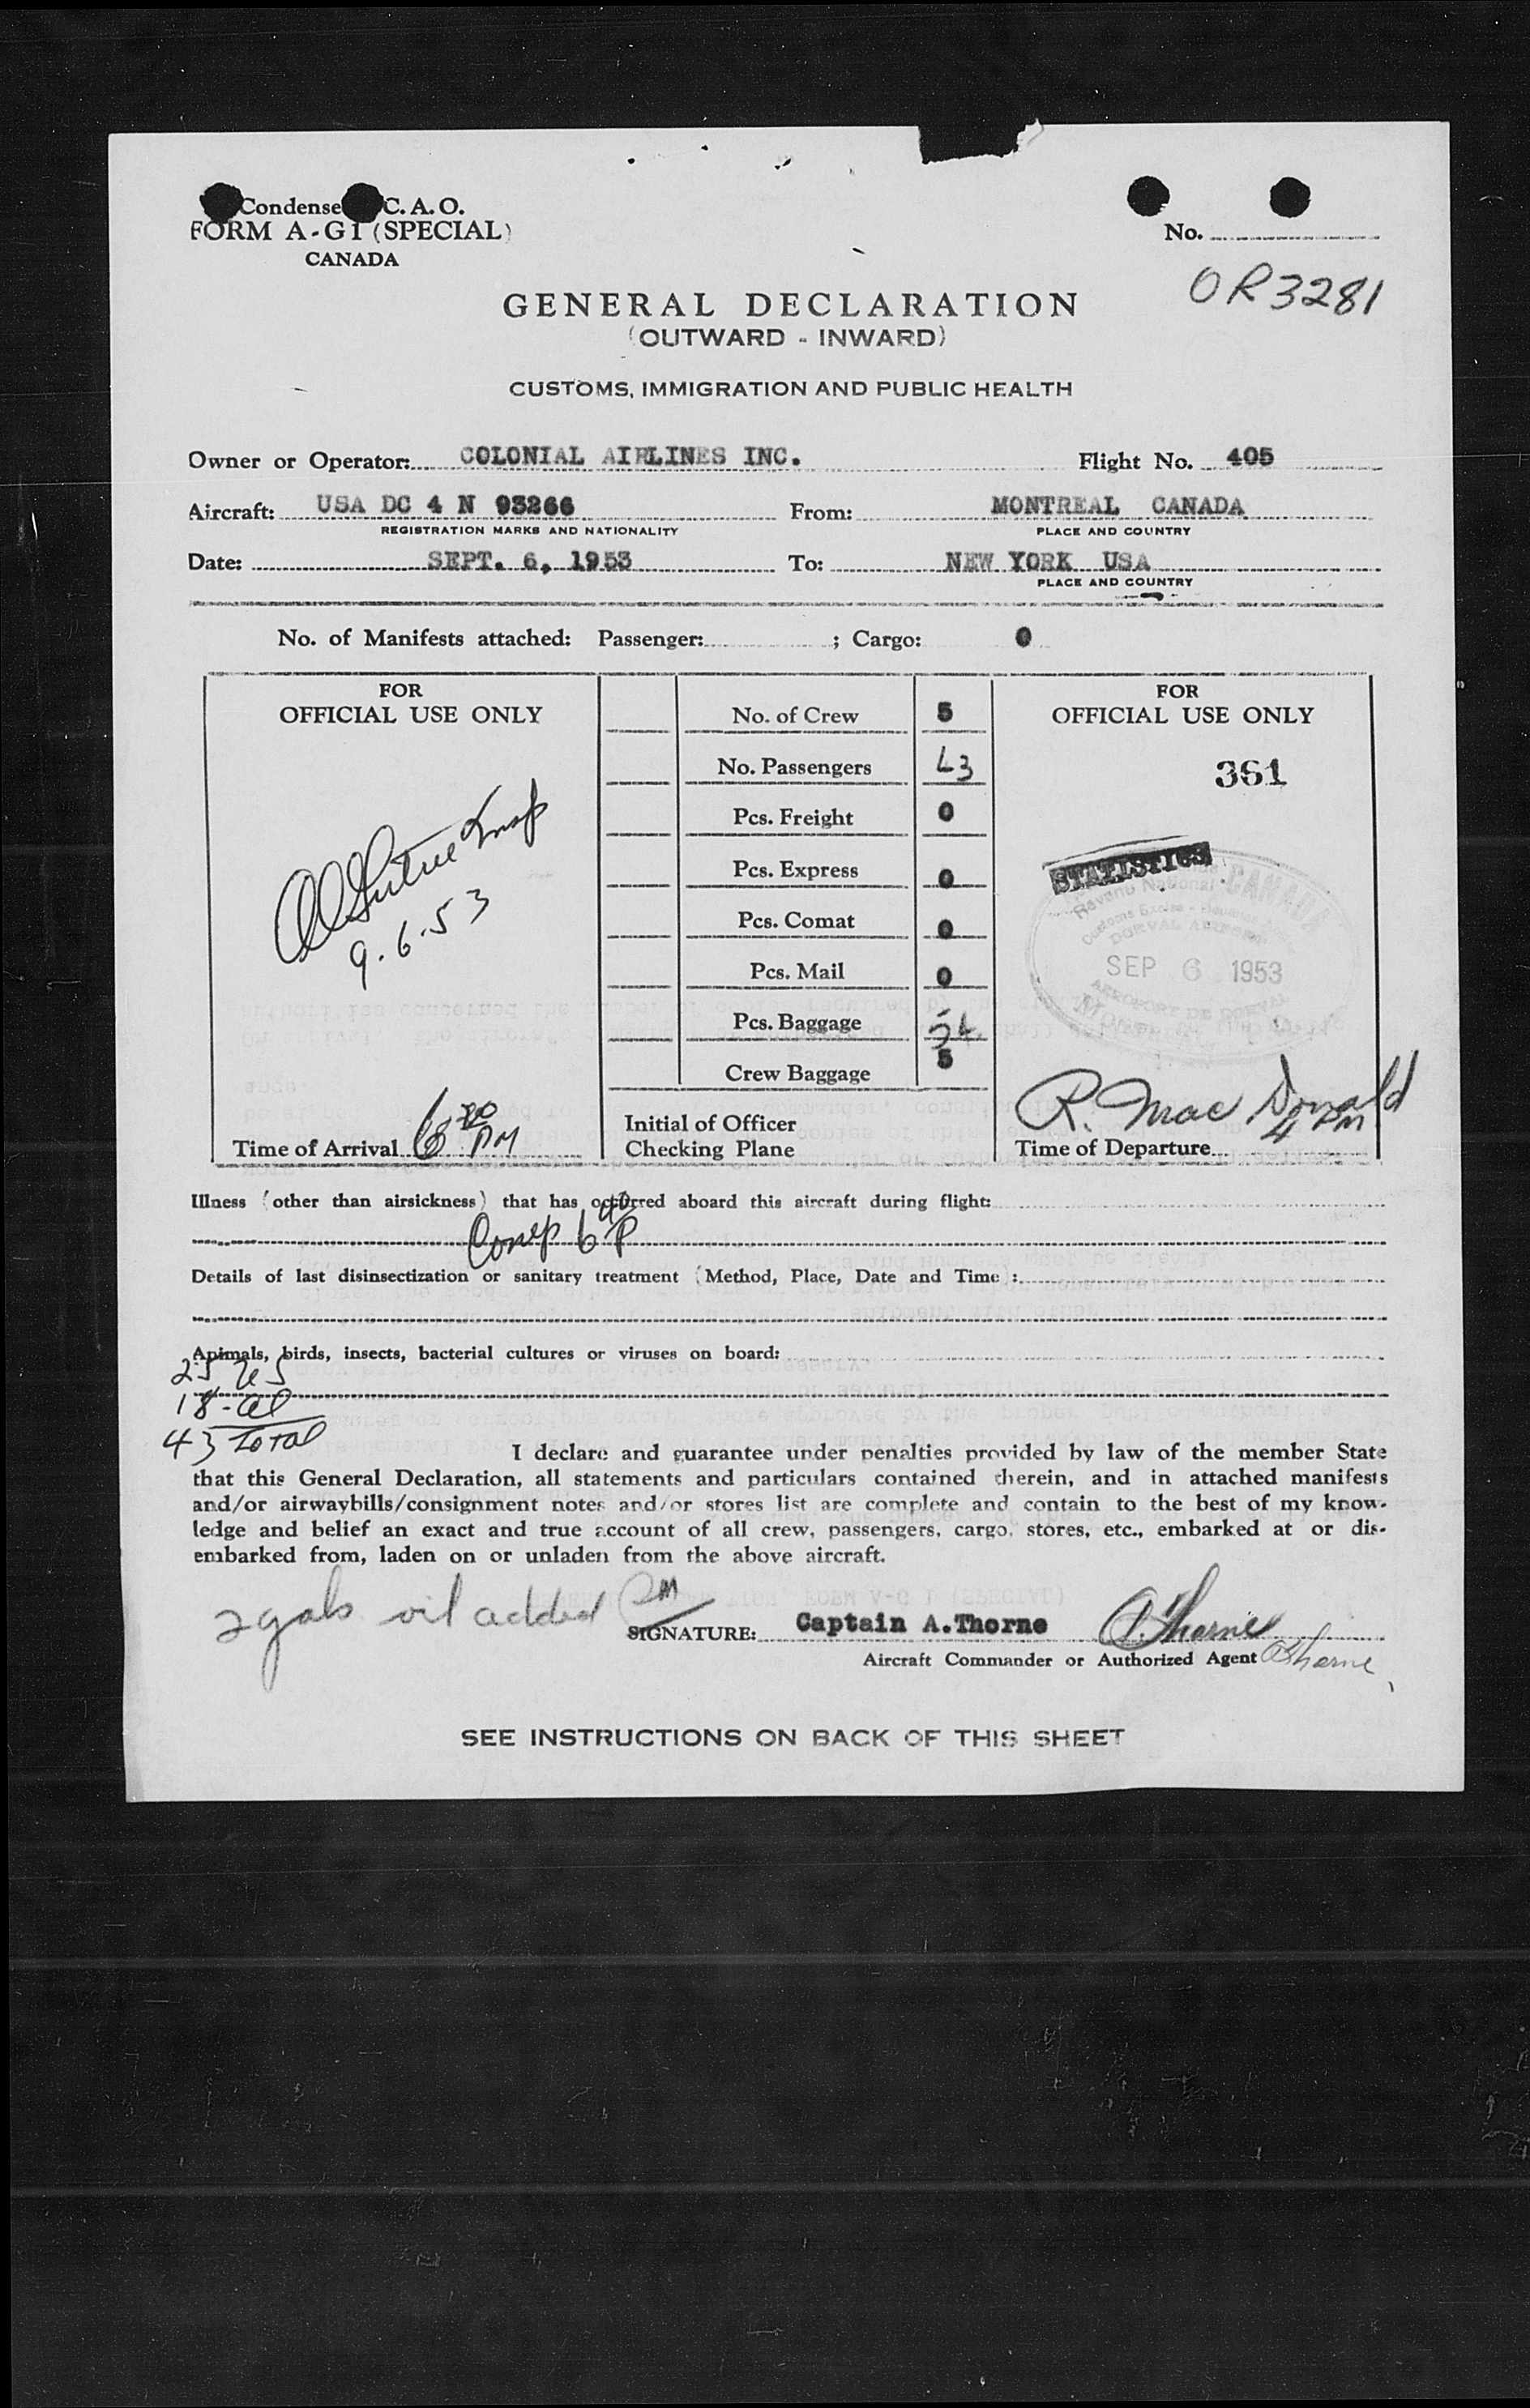 Condense C. A. O.
FORM A-G1 (SPECIAL)
CANADA
No.
OR3281
GENERAL DECLARATION
(OUTWARD - INWARD)
CUSTOMS, IMMIGRATION AND PUBLIC HEALTH
Owner or Operator: COLONIAL AIRLINES INC. Flight No. 405
Aircraft: USA DC 4 N 93266 From: MONTREAL CANADA
REGISTRATION MARKS AND NATIONALITY PLACE AND COUNTRY
Date: SEPT. 6, 1953 To: NEW YORK USA
PLACE AND COUNTRY
No. of Manifests attached: Passenger: ; Cargo: 0
FOR
OFFICIAL USE ONLY
Insp
9.6.53
Time of Arrival 6 30 PM
No. of Crew 5
No. Passengers 43
Pcs. Freight 0
Pcs. Express 0
Pcs. Comat 0
Pcs. Mail 0
Pcs. Baggage 54
Crew Baggage 5
Initial of Officer
Checking Plane
FOR
OFFICIAL USE ONLY
361
STATISTICS
CANADA
Revenu National
DORVAL AIRPORT
SEP 6 1953
AEROPORT DE DORVAL
R. MacDonald
4 PM
Time of Departure
Illness (other than airsickness) that has occurred aboard this aircraft during flight:
Comp 6 40 P
Details of last disinsectization or sanitary treatment (Method, Place, Date and Time :
Animals, birds, insects, bacterial cultures or viruses on board:
25 US
18 - al
43 Total
I declare and guarantee under penalties provided by law of the member State
that this General Declaration, all statements and particulars contained therein, and in attached manifests
and/or airwaybills/consignment notes and/or stores list are complete and contain to the best of my know-
ledge and belief an exact and true account of all crew, passengers, cargo, stores, etc., embarked at or dis-
embarked from, laden on or unladen from the above aircraft.
2 gals oil added
SIGNATURE: Captain A.Thorne A. Thorne
Aircraft Commander or Authorized Agent A Thorne
SEE INSTRUCTIONS ON BACK OF THIS SHEET